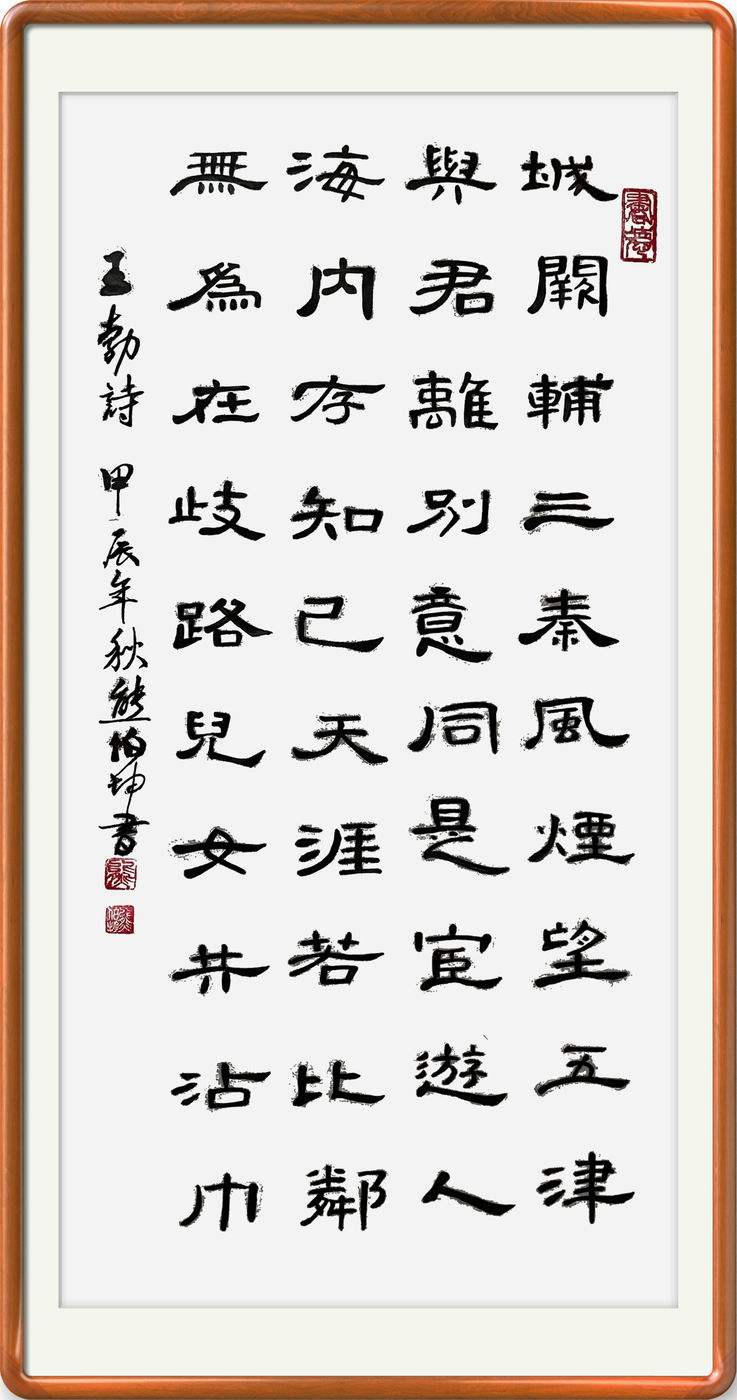 城闕輔三秦風煙望五津
與君離別意同是宦遊人
海内存知己天涯若比鄰
無爲在歧路兒女共沾巾
王勃詩 甲辰年秋熊伯坤書